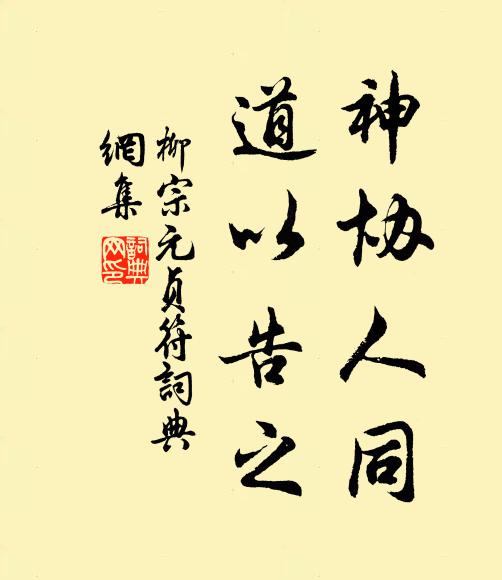 神协人同
道以告之
柳宗元贞符詞典
網集
詞典网印